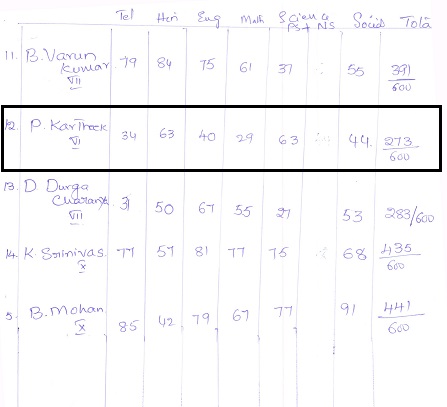 Tel Hin Eng Math Science Social Total
PS + NS
11. B. Varun 79 84 75 61 37 55 391
Kumar 600
VII
12. P. Kartheek 34 63 40 29 63 44 273
VI 600
13. D Durga 31 50 67 55 27 53 283/600
Charan
VII
14. K. Srinivas 77 57 81 77 75 68 435
X 600
5. B. Mohan 85 42 79 67 77 91 441
X 600